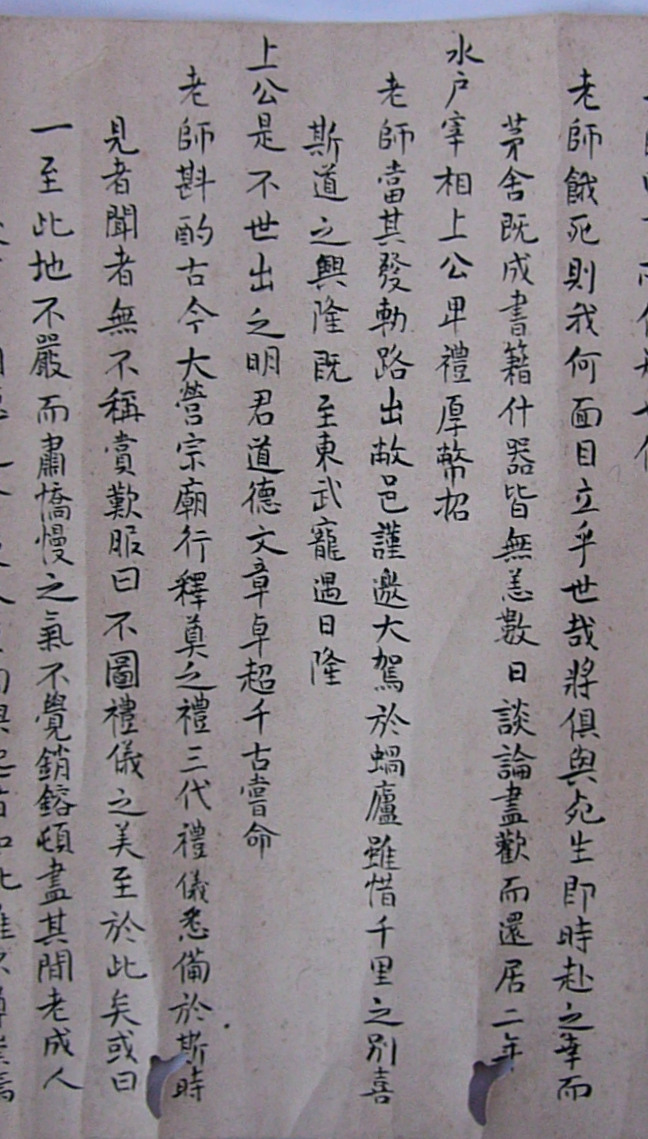 老師餓死則我何面目立乎世哉將俱與死生即時赴之幸而
茅舍既成書籍什器皆無恙數日談論盡歡而還居二年
水戶宰相上公卑禮厚幣招
老師當其發軔路出敝邑謹邀大駕於蝸廬雖惜千里之別喜
斯道之興隆既至東武寵遇日隆
上公是不世出之明君道德文章卓超千古嘗命
老師斟酌古今大營宗廟行釋奠之禮三代禮儀悉備於斯時
見者聞者無不稱賞歎服曰不圖禮儀之美至於此矣或曰
一至此地不嚴而肅憍慢之氣不覺銷鎔頓盡其間老成人